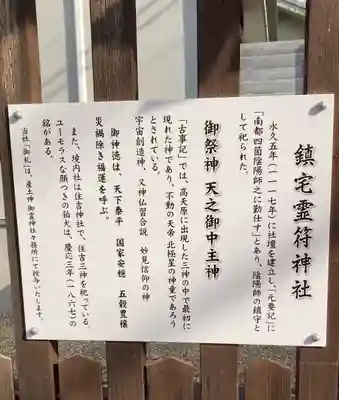 鎮宅霊符神社
永久五年(一一一七年)に社壇を建立し、「元要記」に
「南都四箇陰陽師之勤仕す」とあり、陰陽師の鎮守と
して祀られた。
御祭神 天之御中主神
「古事記」では、高天原に出現した三神の中で最初に
現れた神であり、不動の天帝 北極星の神霊であろう
とされている。
宇宙創造神、又神仏習合説 妙見信仰の神
御神徳は、天下泰平 国家安穏 五穀豊穣
災禍除き福運を呼ぶ。
また、境内社は住吉神社で、住吉三神を祀っている。
ユーモラスな顔つきの狛犬は、慶応三年(一八六七)の
銘がある。
当社「御札」は、産土神 御霊神社々務所にて授与いたします。